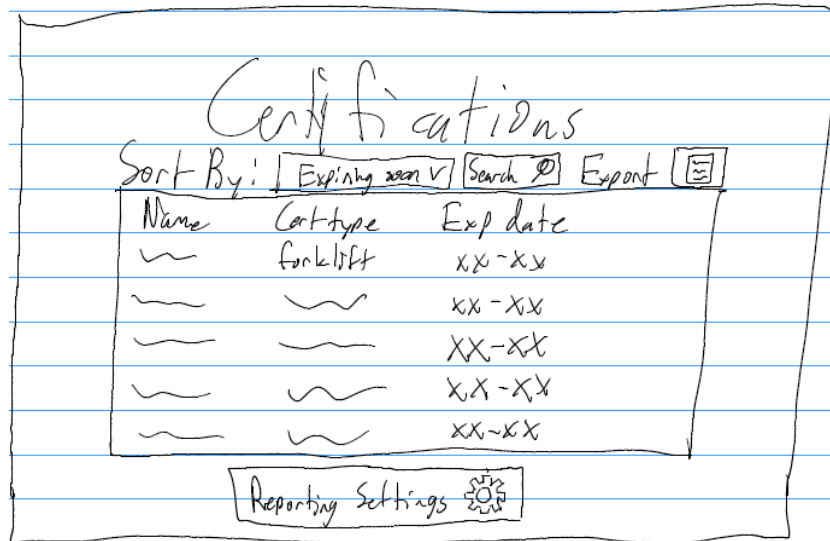 Certifications
Sort By: Expiring soon v Search Export
Name Cert type Exp date
forklift xx-xx
xx-xx
xx-xx
xx-xx
xx-xx
Reporting Settings